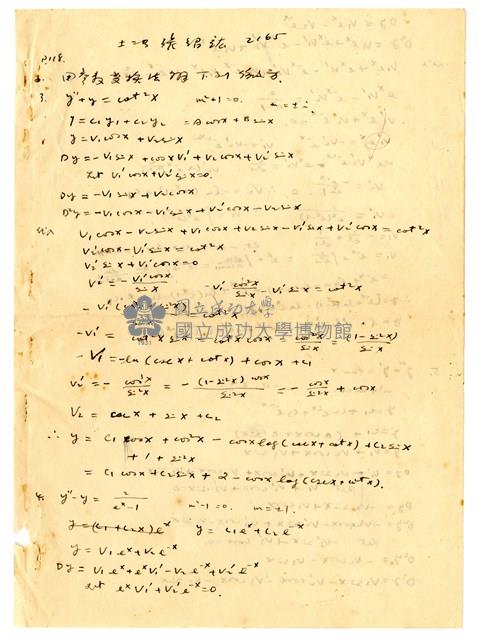 土二乃 張紹 2165
P.118.
2. 用參數變換法解下列
3. y''+y = cot²x m²+1=0. m=±i
y = c₁y₁+c₂y₂ = A cosx + B sinx
y = V₁cosx + V₂sinx
Dy = -V₁sinx + cosx V₁' + V₂cosx + V₂'sinx
Let V₁'cosx + V₂'sinx = 0.
Dy = -V₁sinx + V₂cosx
D²y = -V₁cosx - V₁'sinx + V₂'cosx - V₂sinx
V₁cosx - V₂sinx + V₁cosx + V₂sinx - V₁'sinx + V₂'cosx = cot²x
V₂'cosx - V₁'sinx = cot²x
V₂'sinx + V₁'cosx = 0
V₂' = - V₁'cosx / sinx
- V₁' cos²x / sinx - V₁'sinx = cot²x
國立成功大學
國立成功大學博物館
1931
-V₁' = cot²x sinx = cotx cosx = cos²x / sinx = (1-sin²x) / sinx
-V₁ = -ln(cscx + cotx) + cosx + c₁
V₂' = - cos³x / sin²x = - (1-sin²x)cosx / sin²x = - cosx / sin²x + cosx
V₂ = cscx + sinx + c₂
∴ y = c₁cosx + cos²x - cosx log(cscx+cotx) + c₂sinx
+ 1 + sin²x
= c₁cosx + c₂sinx + 2 - cosx log(cscx+cotx).
4. y''-y = 2 / eˣ-1 m²-1=0. m=±1.
y = (c₁+c₂x)eˣ y = c₁eˣ+c₂e⁻ˣ
y = V₁eˣ+V₂e⁻ˣ
Dy = V₁eˣ+eˣV₁'-V₂e⁻ˣ+V₂'e⁻ˣ
Let eˣV₁'+V₂'e⁻ˣ=0.